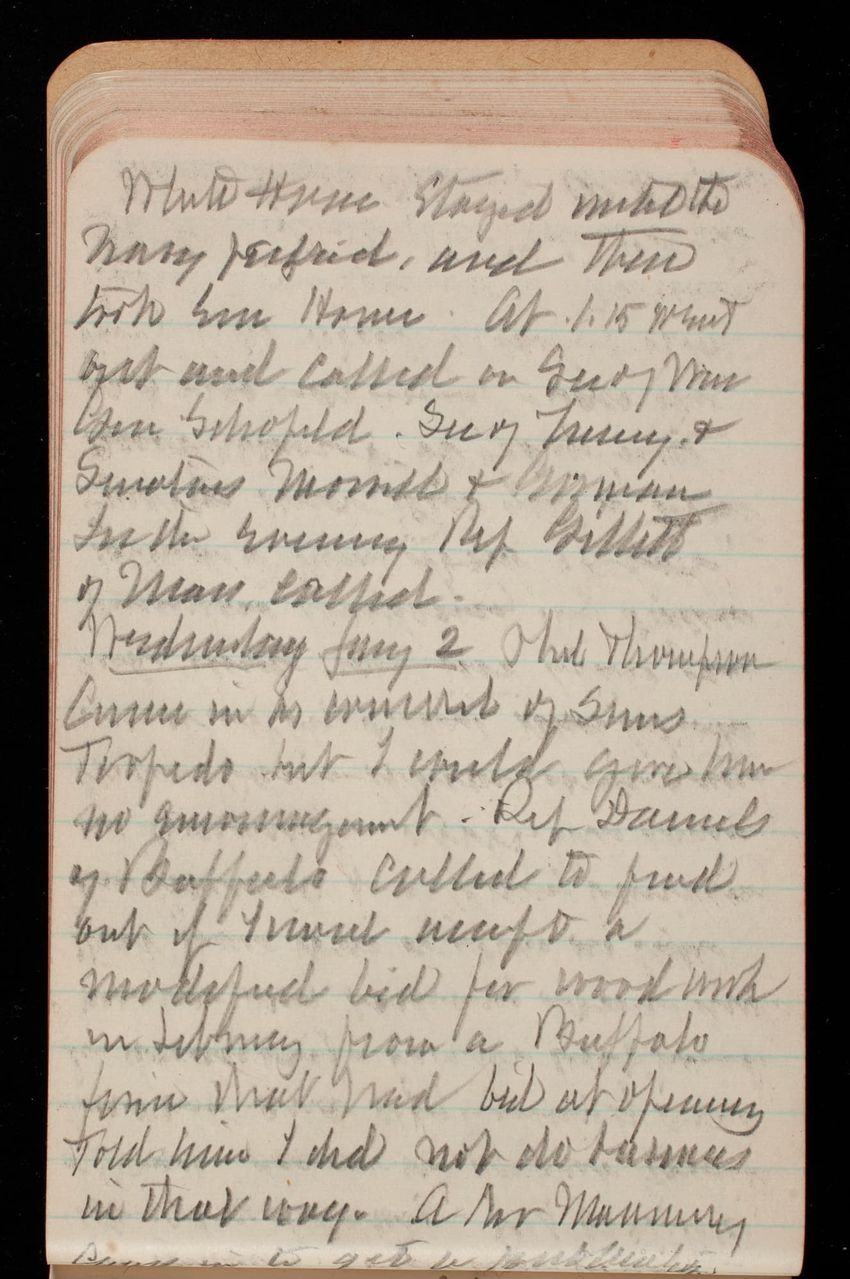 White House Stayed until the
Navy passed, and then
took Em Home. At 1.15 went
out and called on Sec of War
Gen Schofield. Sec of Treasy. &
Senators Morrill & Gorman
In the Evening Rep Gillett
of Mass. called.
Wednesday Jany 2 Phil Thompson
Came in in interest of Sims
Torpedo but I could give him
no encouragement. Rep Daniels
of Buffalo called to find
out if I would accept a
modified bid for wood work
in Library from a Buffalo
firm that had bid at opening
Told him I did not do business
in that way. A Mr
in to get a